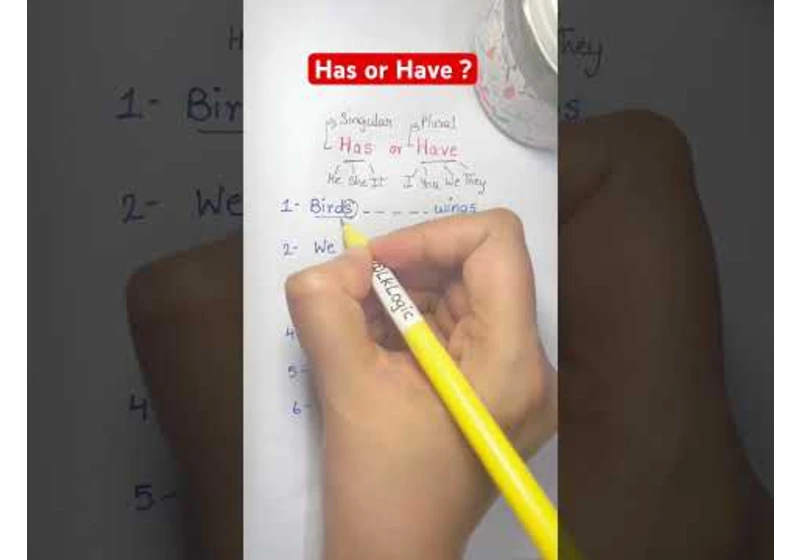 Has or Have ?
Singular Plural
Has or Have
He She It I You We They
1- Birds - - - - - wings
2- We
4
5-
6-
@LkLogic